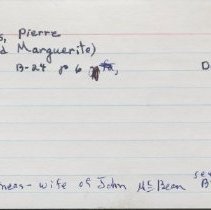 s, Pierre
d Marguerite)
B-24 p 6
D
ness- wife of John McBean see
B